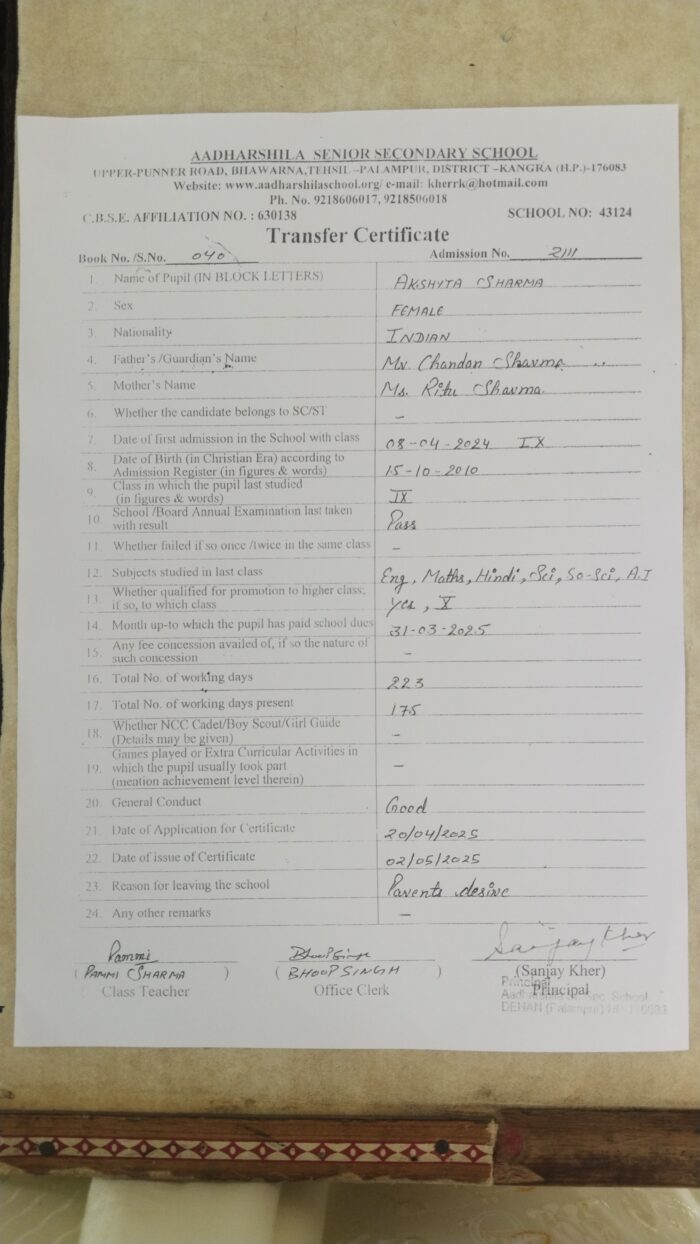 AADHARSHILA SENIOR SECONDARY SCHOOL
UPPER-PUNNER ROAD, BHAWARNA,TEHSIL –PALAMPUR, DISTRICT –KANGRA (H.P.)-176083
Website: www.aadharshilaschool.org/ e-mail: kherrk@hotmail.com
Ph. No. 9218606017, 9218506018
C.B.S.E. AFFILIATION NO. : 630138 SCHOOL NO: 43124
Transfer Certificate
Book No. /S.No. 040 Admission No. 2111
1. Name of Pupil (IN BLOCK LETTERS) AKSHYTA SHARMA
2. Sex FEMALE
3. Nationality INDIAN
4. Father's /Guardian's Name Mr. Chandan Sharma
5. Mother's Name Ms. Ritu Sharma
6. Whether the candidate belongs to SC/ST –
7. Date of first admission in the School with class 08-04-2024 IX
8. Date of Birth (in Christian Era) according to
Admission Register (in figures & words) 15-10-2010
9. Class in which the pupil last studied
(in figures & words) IX
10. School /Board Annual Examination last taken
with result Pass
11. Whether failed if so once /twice in the same class –
12. Subjects studied in last class Eng, Maths, Hindi, Sci, So-Sci, A.I
13. Whether qualified for promotion to higher class;
if so, to which class yes, X
14. Month up-to which the pupil has paid school dues 31-03-2025
15. Any fee concession availed of, if so the nature of
such concession –
16. Total No. of working days 223
17. Total No. of working days present 175
18. Whether NCC Cadet/Boy Scout/Girl Guide
(Details may be given) –
19. Games played or Extra Curricular Activities in
which the pupil usually took part
(mention achievement level therein) –
20. General Conduct Good
21. Date of Application for Certificate 20/04/2025
22. Date of issue of Certificate 02/05/2025
23. Reason for leaving the school Parents desire
24. Any other remarks –
Pammi Bhoop Singh Sanjay Kher
( PAMMI SHARMA ) ( BHOOP SINGH ) (Sanjay Kher)
Class Teacher Office Clerk Principal
Principal
Sec. School
DEHAN (Palampur)